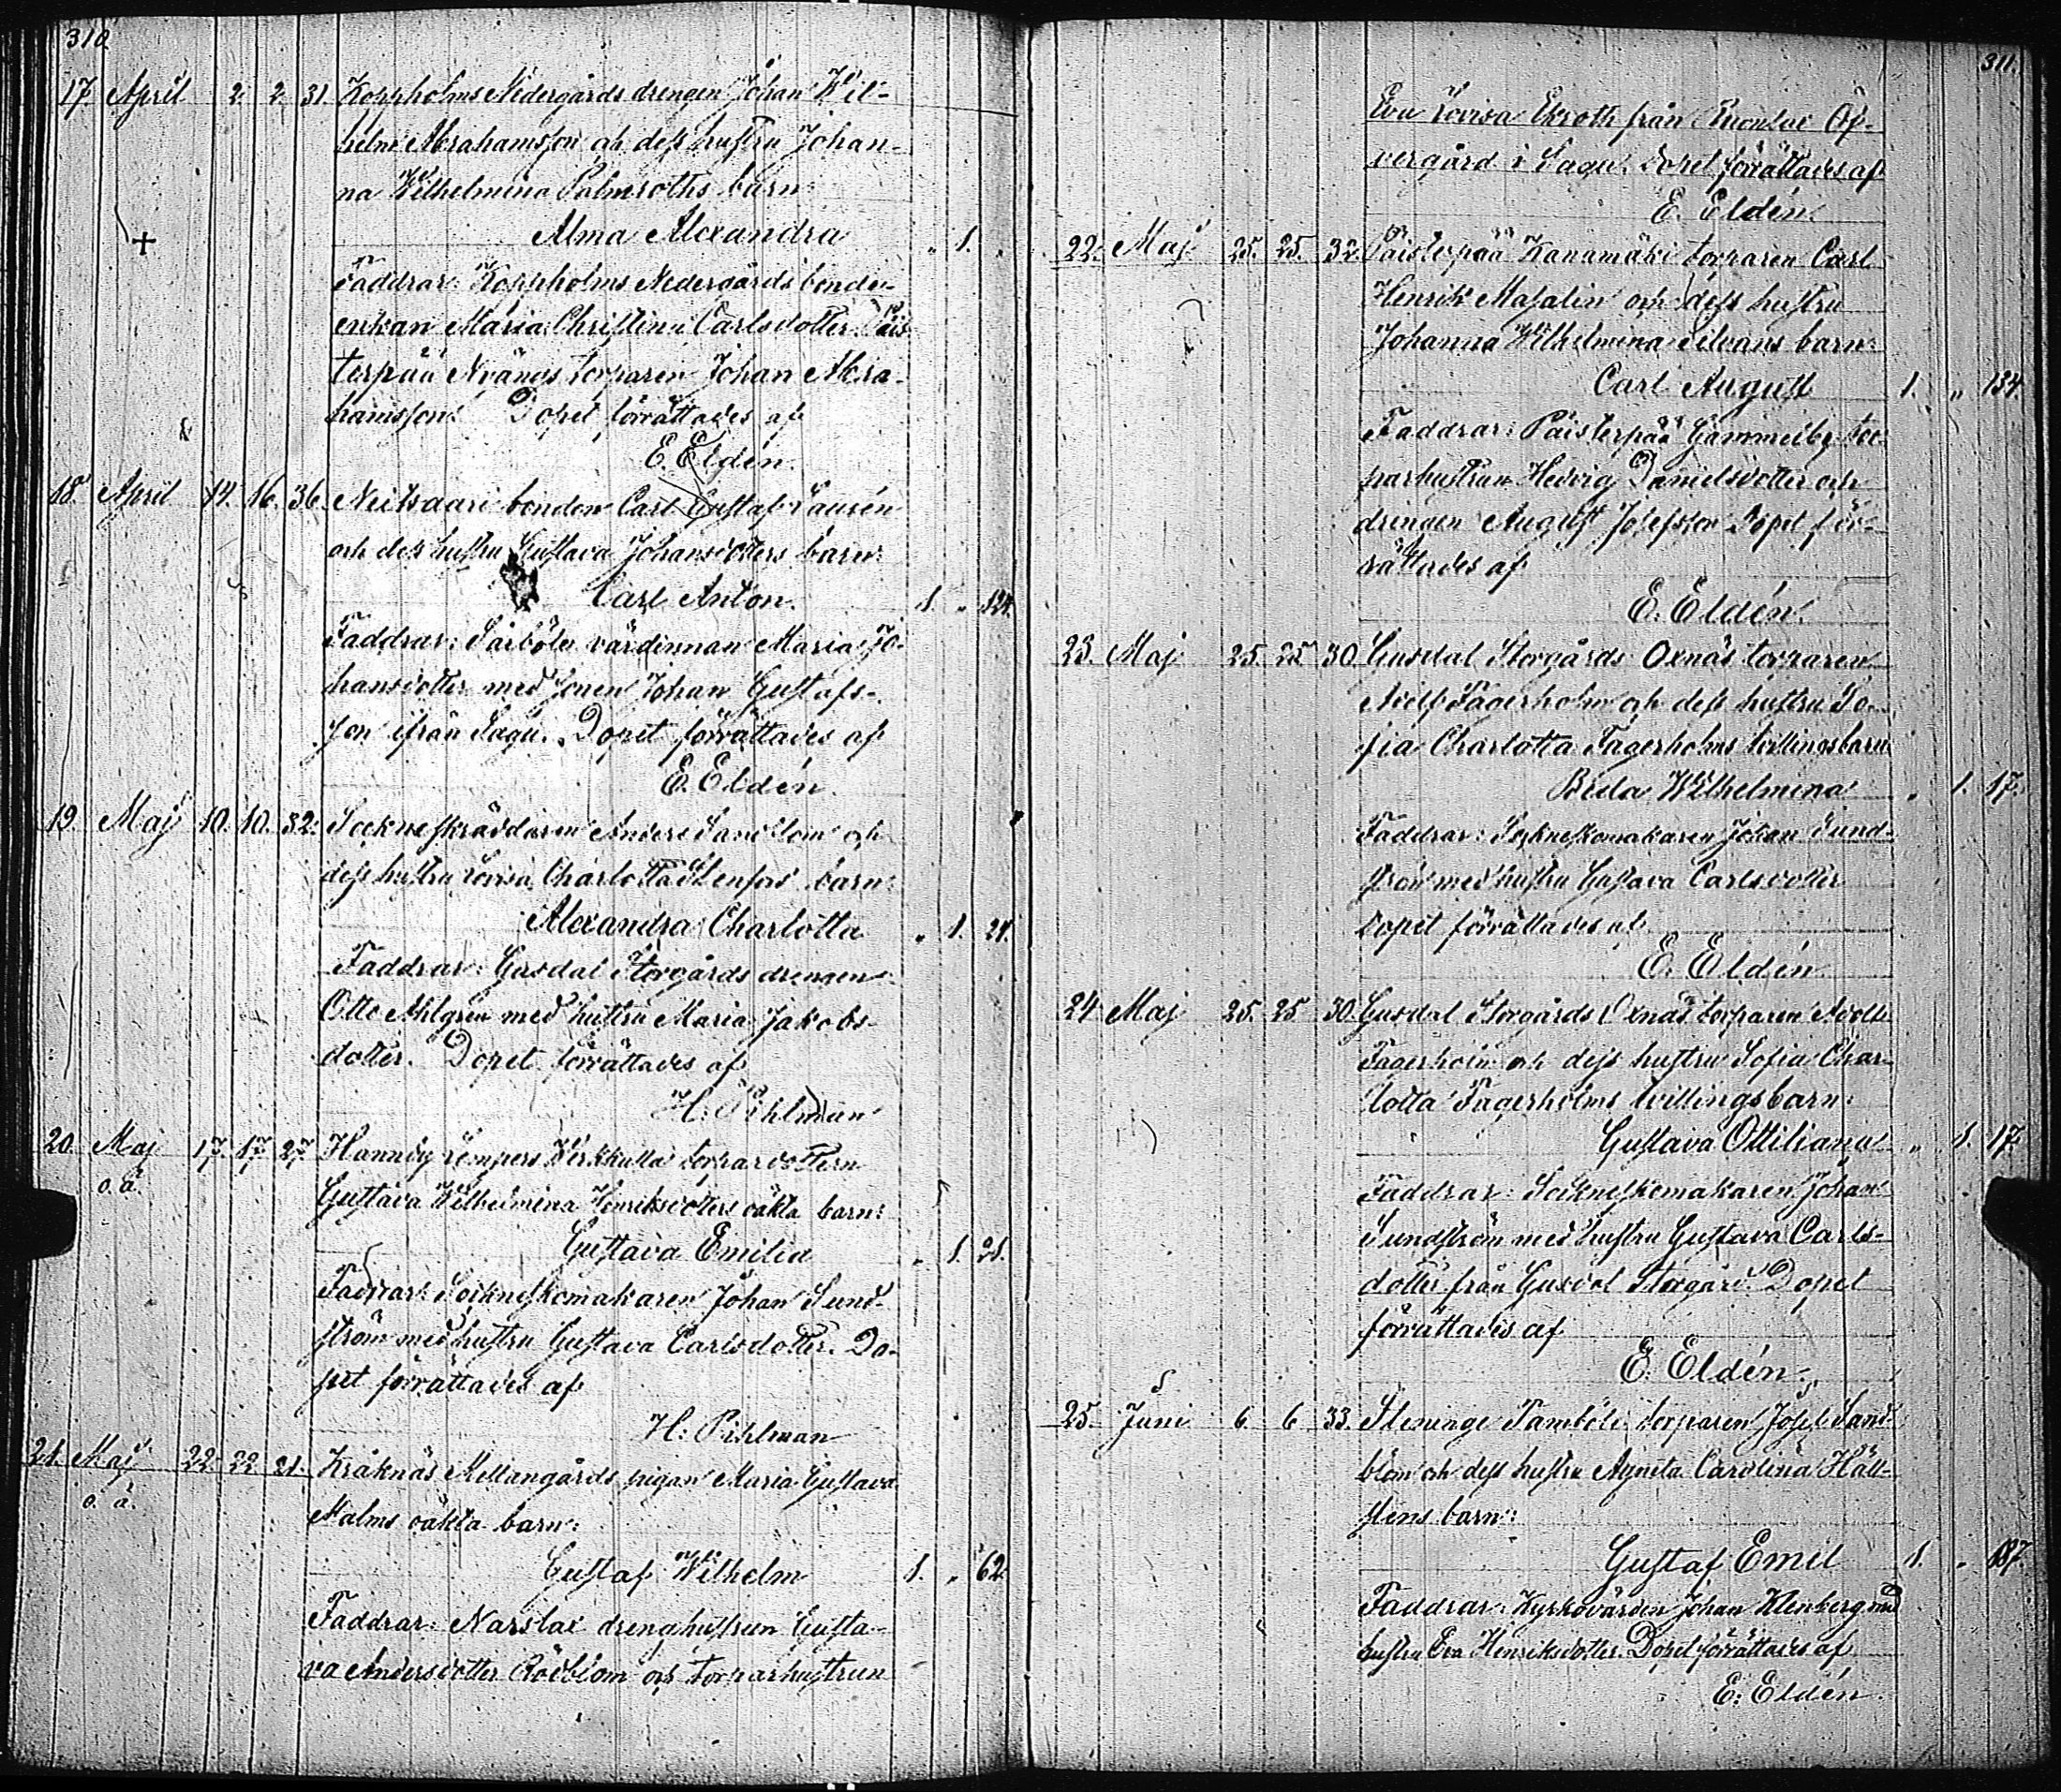 310.
17. April 2. 2. 31. Koppholms Nedergårds drengen Johan Wil-
helm Abrahamsson och dess hustru Johan-
na Wilhelmina Palmroths barn:
Alma Alexandra „ 1. „
Faddrar: Koppholms Nedergårds bonde-
enkan Maria Christina Carlsdotter Päis-
terpää torparen Johan Abra-
hamsson. Dopet förrättades af
E. Eldén.
18. April 14. 16. 36. bonden Carl Gustaf Laurén
och dess hustru Gustava Johansdotters barn:
Carl Anton. 1. „
Faddrar: värdinnan Maria Jo-
hansdotter med sonen Johan Gustafs-
son ifrån Sagu. Dopet förrättades af
E. Eldén.
19. Maj 10. 10. 32. Sockneskräddaren Anders Sandblom och
dess hustru Lovisa Charlotta barn:
Alexandra Charlotta „ 1. 24.
Faddrar: Gusdal Storgårds drengen
Otto Ahlgren med hustru Maria Jakobs-
dotter. Dopet förrättades af
H. Pihlman
20. Maj 17. 17. 27. torpardottern
o.ä. Gustava Wilhelmina Henriksdotters oäkta barn:
Gustava Emilia „ 1. 21.
Faddrar: Sockneskomakaren Johan Sund-
ström med hustru Gustava Carlsdotter. Do-
pet förrättades af
H. Pihlman
21. Maj 22. 22. 21. Kråknäs Mellangårds pigan Maria Gustava
o.ä. Malms oäkta barn:
Gustaf Wilhelm 1. „ 62.
Faddrar: drenghustrun Gusta-
va Andersdotter Rödblom och torparhustrun
311.
Eva Lovisa Ekroth från Öf-
vergård i Sagu. Dopet förrättades af
E. Eldén.
22. Maj 25. 25. 32. Päisterpää Kanamäki torparen Carl
Henrik Masalin och dess hustru
Johanna Wilhelmina Silvans barn:
Carl August 1. „ 134.
Faddrar: Päisterpää Gammelby tor-
parhustrun Hedvig Danielsdotter och
drengen August Josefsson. Dopet för-
rättades af
E. Eldén.
23. Maj 25. 25. 30. Gusdal Storgårds Oxnäs torparen
Adolf Fagerholm och dess hustru So-
fia Charlotta Fagerholms tvillingsbarn
Breda Wilhelmina „ 1. 17.
Faddrar: Sockneskomakaren Johan Sund-
ström med hustru Gustava Carlsdotter
Dopet förrättades af
E. Eldén
24. Maj 25. 25. 30. Gusdal Storgårds Oxnäs torparen Adolf
Fagerholm och dess hustru Sofia Char-
lotta Fagerholms tvillingsbarn:
Gustava Ottiliana „ 1. 17.
Faddrar: Sockneskomakaren Johan
Sundström med hustru Gustava Carls-
dotter från Gusdal Storgård. Dopet
förrättades af
E. Eldén.
25. Juni 6. 6. 33. Steninge Tamböle torparen Josef Sand-
blom och dess hustru Agneta Carolina Häll-
stens barn:
Gustaf Emil 1. „ 187.
Faddrar: Kyrkovärden Johan Klenberg med
hustru Eva Henriksdotter. Dopet förrättades af
E. Eldén.